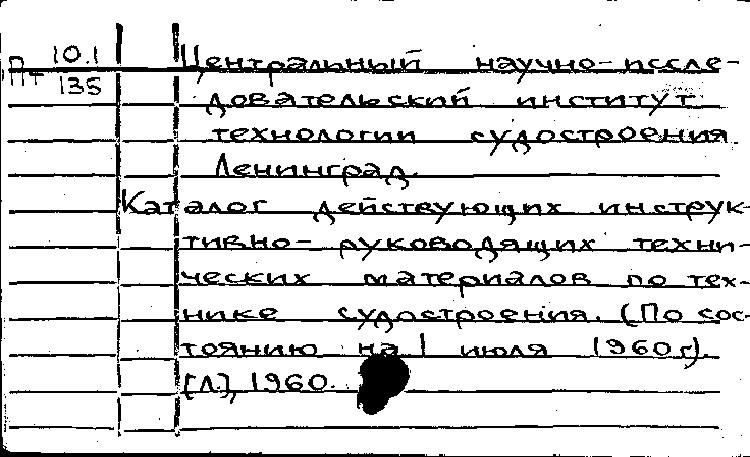 Пт 10.1
135
Центральный научно-иссле-
довательский институт
технологии судостроения.
Ленинград.
Каталог действующих инструк-
тивно-руководящих техни-
ческих материалов по тех-
нике судостроения. (По сос-
тоянию на 1 июля 1960 г).
[Л.], 1960.